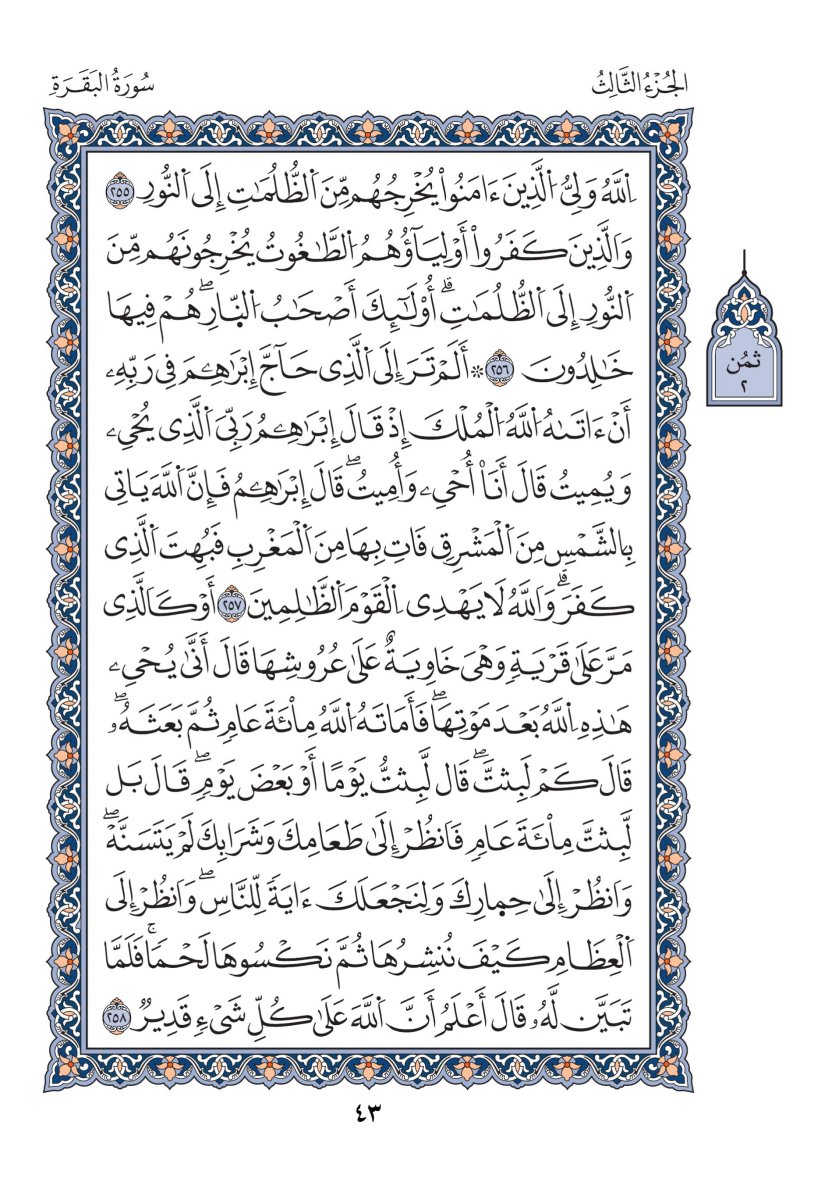 الجُزْءُ الثَّالِثُ
سُورَةُ البَقَرَةِ
اِ۬للَّهُ وَلِيُّ اُ۬لَّذِينَ ءَامَنُواْ يُخْرِجُهُم مِّنَ اَ۬لظُّلُمَٰتِ إِلَى اَ۬لنُّورِ ٢٥٥
وَالَّذِينَ كَفَرُواْ أَوْلِيَآؤُهُمُ اُ۬لطَّٰغُوتُ يُخْرِجُونَهُم مِّنَ
اَ۬لنُّورِ إِلَى اَ۬لظُّلُمَٰتِۗ أُوْلَٰٓئِكَ أَصْحَٰبُ اُ۬لنّ۪ارِۖ هُمْ فِيهَا
خَٰلِدُونَ ٢٥٦ ۞ أَلَمْ تَرَ إِلَى اَ۬لَّذِي حَآجَّ إِبْرَٰهِـۧمَ فِي رَبِّهِۦٓ
أَنْ ءَاتَىٰهُ اُ۬للَّهُ اُ۬لْمُلْكَ إِذْ قَالَ إِبْرَٰهِـۧمُ رَبِّيَ اَ۬لَّذِي يُحْيِۦ
وَيُمِيتُ قَالَ أَنَا۠ أُحْيِۦ وَأُمِيتُۖ قَالَ إِبْرَٰهِـۧمُ فَإِنَّ اَ۬للَّهَ يَاتِي
بِالشَّمْسِ مِنَ اَ۬لْمَشْرِقِ فَاتِ بِهَا مِنَ اَ۬لْمَغْرِبِ فَبُهِتَ اَ۬لَّذِي
كَفَرَۗ وَاللَّهُ لَا يَهْدِي اِ۬لْقَوْمَ اَ۬لظَّٰلِمِينَ ٢٥٧ أَوْ كَالَّذِي
مَرَّ عَلَىٰ قَرْيَةٖ وَهْيَ خَاوِيَةٌ عَلَىٰ عُرُوشِهَا قَالَ أَنّ۪ىٰ يُحْيِۦ
هَٰذِهِ اِ۬للَّهُ بَعْدَ مَوْتِهَاۖ فَأَمَاتَهُ اُ۬للَّهُ مِاْئَةَ عَامٖ ثُمَّ بَعَثَهُۥۖ
قَالَ كَمْ لَبِثتَّۖ قَال لَّبِثتُّ يَوْمًا أَوْ بَعْضَ يَوْمٖۖ قَالَ بَل
لَّبِثتَّ مِاْئَةَ عَامٖ فَانظُرْ إِلَىٰ طَعَامِكَ وَشَرَابِكَ لَمْ يَتَسَنَّهْۖ
وَانظُرْ إِلَىٰ حِم۪ارِكَ وَلِنَجْعَلَكَ ءَايَةٗ لِّلنَّاسِۖ وَانظُرْ إِلَى
اَ۬لْعِظَامِ كَيْفَ نُنشِرُهَا ثُمَّ نَكْسُوهَا لَحْمٗاۚ فَلَمَّا
تَبَيَّن لَّهُۥ قَالَ أَعْلَمُ أَنَّ اَ۬للَّهَ عَلَىٰ كُلِّ شَيْءٖ قَدِيرٞ ٢٥٨
ثمُن
٢
٤٣